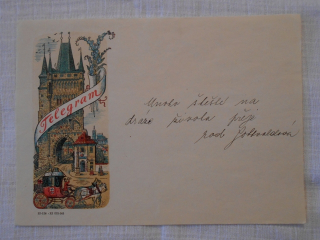 Telegram
Mnoho štěstí na
dráze života přeje
rod. Gottwaldová